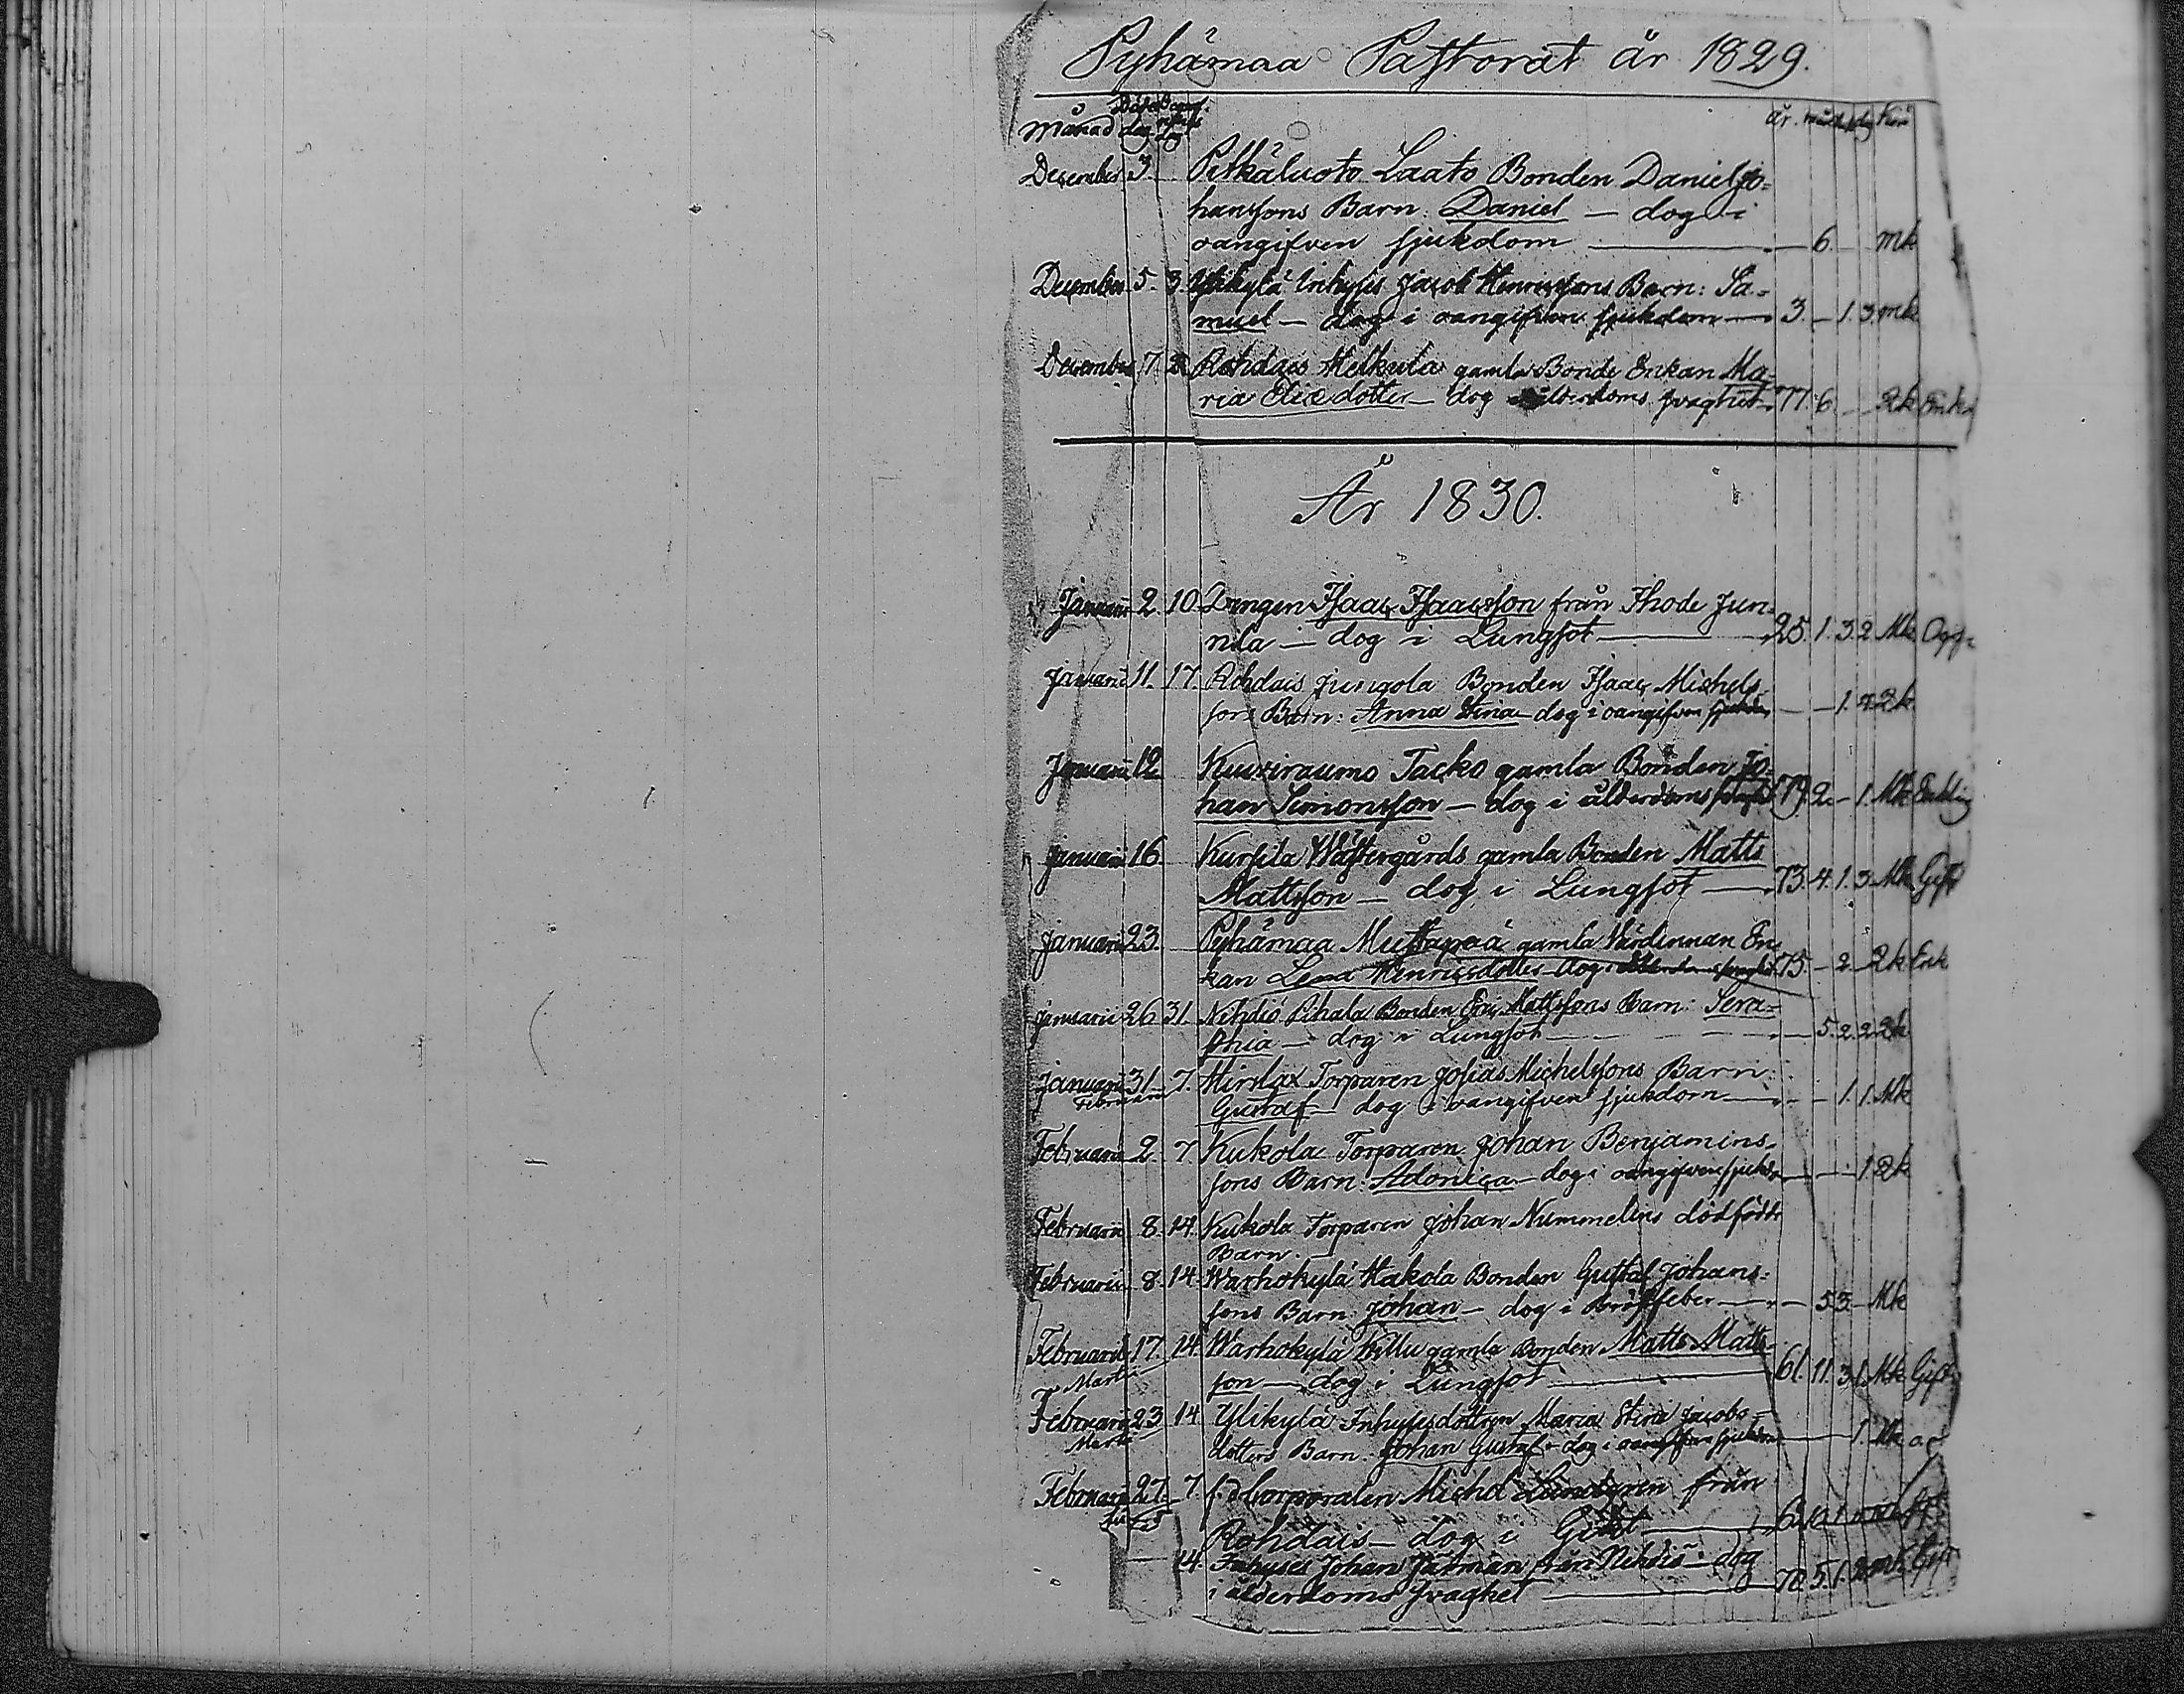 Pyhämaa Pastorat år 1829.
Månad Döds dag Begraf-nings dag år. månad dag Kön
December 3. Pitkäluoto Laato Bonden Daniel Jo-
hanssons Barn: Daniel — dog i
oangifven sjukdom — 6. mk
December 5. 3. Ylikylä Inhyses Jacob Henricssons Barn: Sa-
muel — dog i oangifven sjukdom — 3. — 1. 3. mk
December 7 Rohdais Heikula gamla Bonde Enkan Ma-
ria Ericsdotter — dog i ålderdoms svaghet. 77. 6 — Qk Enka
År 1830.
Januarii 2. 10. Drengen Isaac Isaacsson från Ihode Jun-
nila — dog i Lungsot — 25. 1. 3. 2. Mk Ogg.
Januarii 11. 17. Rohdais Junnola Bonden Isaac Michels-
sons Barn: Anna Stina — dog i oangifven sjukdom — 1. 2. Qk
Januarii 12. Kuuxiraumo Jacko gamla Bonden Jo-
han Simonsson — dog i ålderdoms svaghet 79. 2. — 1. Mk Enkling
Januarii 16 Kursila Wästergårds gamla Bonden Matts
Mattsson — dog i Lungsot — 73. 4. 1. 3. Mk Gift
Januarii 23. Pyhämaa Mustapää gamla Wärdinnan En-
kan Lena Henricsdotter — dog i ålderdoms svaghet 75. — 2. — Qk Enk
Januarii 26 31. Nihdiö Pihala Bonden Eric Mattssons Barn: Sera-
phia — dog i Lungsot — 5. 2. 2. Qk
Januarii 31. 7. Hirslax Torparen Josias Michelssons Barn:
Februarii Gustaf — dog i oangifven sjukdom — 1. 1. Mk
Februarii 2. 7. Kukola Torparen Johan Benjamins-
sons Barn: Adonica — dog i oangifven sjukdom — 1. Qk
Februarii 8. 14. Kukola Torparen Johan Nummelins dödfödt
Barn.
Februarii 8. 14. Warhokylä Hakola Bonden Gustaf Johans-
sons Barn: Johan — dog i Bröstfeber — 5. 3. — Mk
Februarii 17. 14. Warhokylä Willu gamla Bonden Matts Matts-
Martii son — dog i Lungsot — 61. 11. 3. 1. Mk Gift
Februarii 23. 14. Ylikylä Inhysesdottren Maria Stina Jacobs-
Martii dotters Barn: Johan Gustaf — dog i oangifven sjukdom — 1. Mk
Februarii 27. 7. f.d. Corporalen Michel Lundgren från
Rohdais — dog i Gikt —
14. Inhyses Johan Jatman från Nihdiö — dog
i ålderdoms svaghet — 70. 5. 1. mk Gift